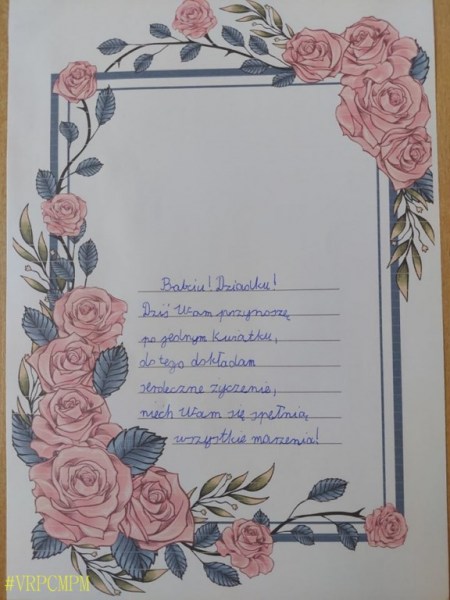 Babciu! Dziadku!
Dziś Wam przynoszę
po jednym kwiatku,
do tego dokładam
serdeczne życzenie,
niech Wam się spełnią
wszystkie marzenia!
#VRPCMPM